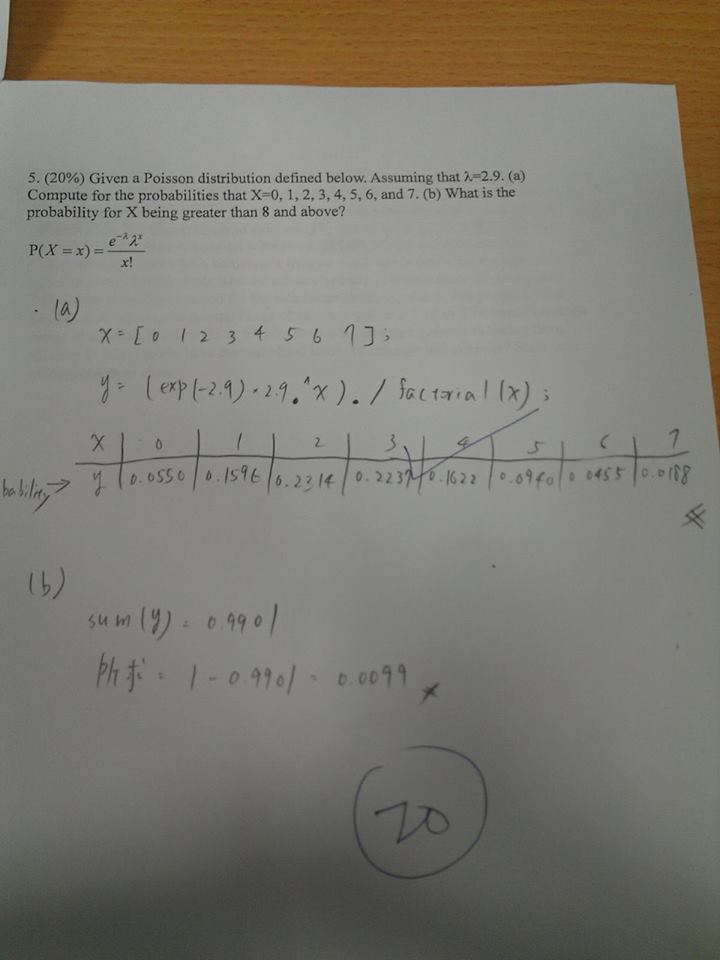 5. (20%) Given a Poisson distribution defined below. Assuming that λ=2.9. (a)
Compute for the probabilities that X=0, 1, 2, 3, 4, 5, 6, and 7. (b) What is the
probability for X being greater than 8 and above?
P(X = x) = e^-λ λ^x / x!
(a)
X = [ 0 1 2 3 4 5 6 7 ] ;
y = (exp(-2.9) * 2.9 .^ X) . / factorial (x) ;
X 0 1 2 3 4 5 6 7
bability → y 0.0550 0.1596 0.2314 0.2237 0.1622 0.0940 0.0455 0.0188
(b)
sum (y) = 0.9901
所求 = 1 - 0.9901 = 0.0099
20